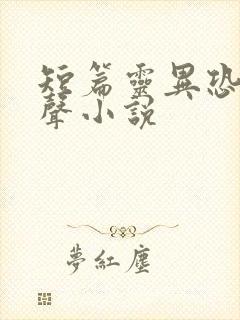 短篇靈異恐
聲小説
夢紅塵